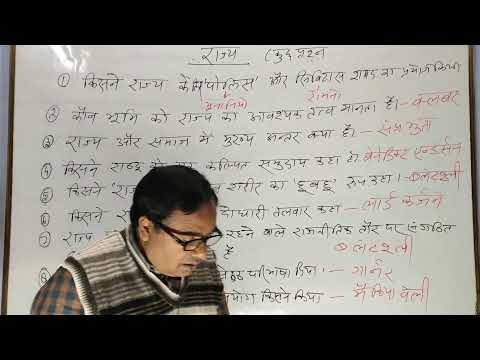 राज्य (कुछ प्रश्न
① किसने राज्य के लिए 'पोलिस' और सिविटास शब्द का प्रयोग किया
यूनानियो रोमन
② कौन भूमि को राज्य का आवश्यक तत्व मानता है। - क्लबर
③ राज्य और समाज में मुख्य अन्तर क्या है। - संप्रभुता
④ किसने राष्ट्र कल्पित समुदाय कहा है। बेनेडिक्ट एण्डर्सन
⑤ किसने 'राज्य शरीर का 'हूबहू' रूप कहा। - ब्लंटश्ली
⑥ किसने तलवार कहा - लार्ड कर्जन
⑦ राज्य रहने वाले राजनीतिक तौर पर संगठित
है ब्लंटश्ली
⑧ किया। - गार्नर
प्रयोग किसने किया - मैकियावेली